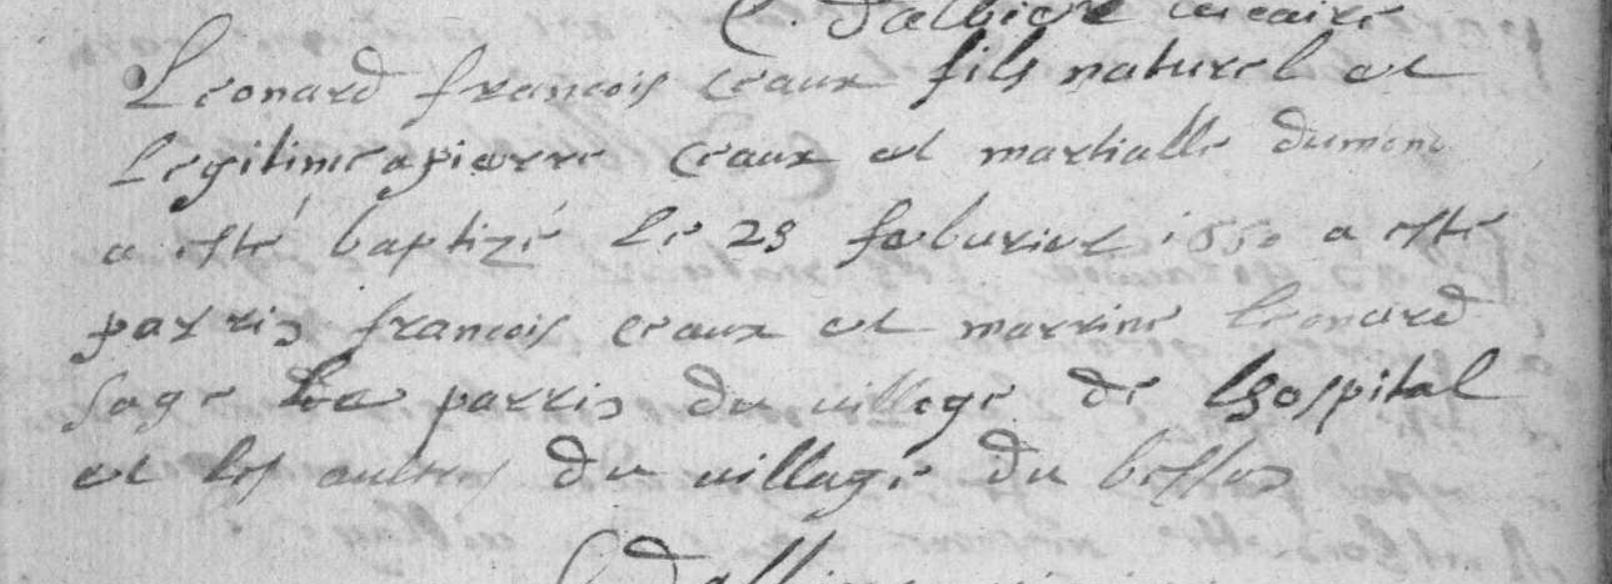 C. Dalbiore vicaire
Leonard francois ceaux fils naturel et
Legitime a pierre ceaux et martialle dumont
a esté baptizé le 23 feburier 1650 a esté
parrin francois ceaux et marrine leonard
sage le parrin du village de lhospital
et les aultres du village du